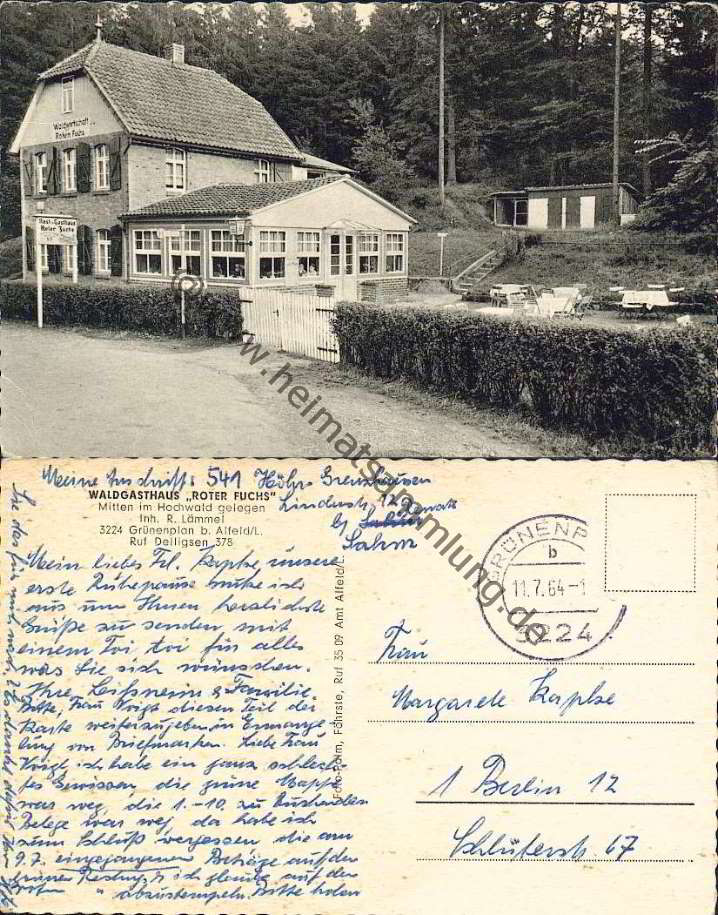 Waldwirtschaft
Roten Fuchs
Rast u. Gasthaus
Roter Fuchs
www.heimatsammlung.de
Meine Anschrift: 541 Höhr-Grenzhausen
WALDGASTHAUS „ROTER FUCHS"
Mitten im Hochwald gelegen
Inh. R. Lämmel
3224 Grünenplan b. Alfeld/L.
Ruf Delligsen 378
Lindenstr. 12
b/
Sahm
Mein liebes Frl. Kapke, unsere
erste Ruhepause nutze ich
aus um Ihnen herzlichste
Grüße zu senden mit
einem Toi toi für alles
was Sie sich wünschen.
Ihre Leißnerin & Familie.
Bitte, Frau Voigt diesen Teil der
Karte weiterzugeben, in Ermange
lung von Briefmarken. Liebe Frau
Voigt ich habe ein ganz schlech
tes Gewissen, die grüne Mappe
war weg, die 1.-10. zu
Belege war weg, da habe ich
zum Schluß vergessen, die am
9.7. eingegangenen Beträge auf den
grünen ich glaube auf den
" abzustempeln. Bitte holen
Foto-Palm, Fohrste, Ruf 35 09 Amt Alfeld/L.
GRÜNENP
b
11.7.64-1
3224
Frau
Margarete Kapke
1 Berlin 12
Schlüterstr. 67